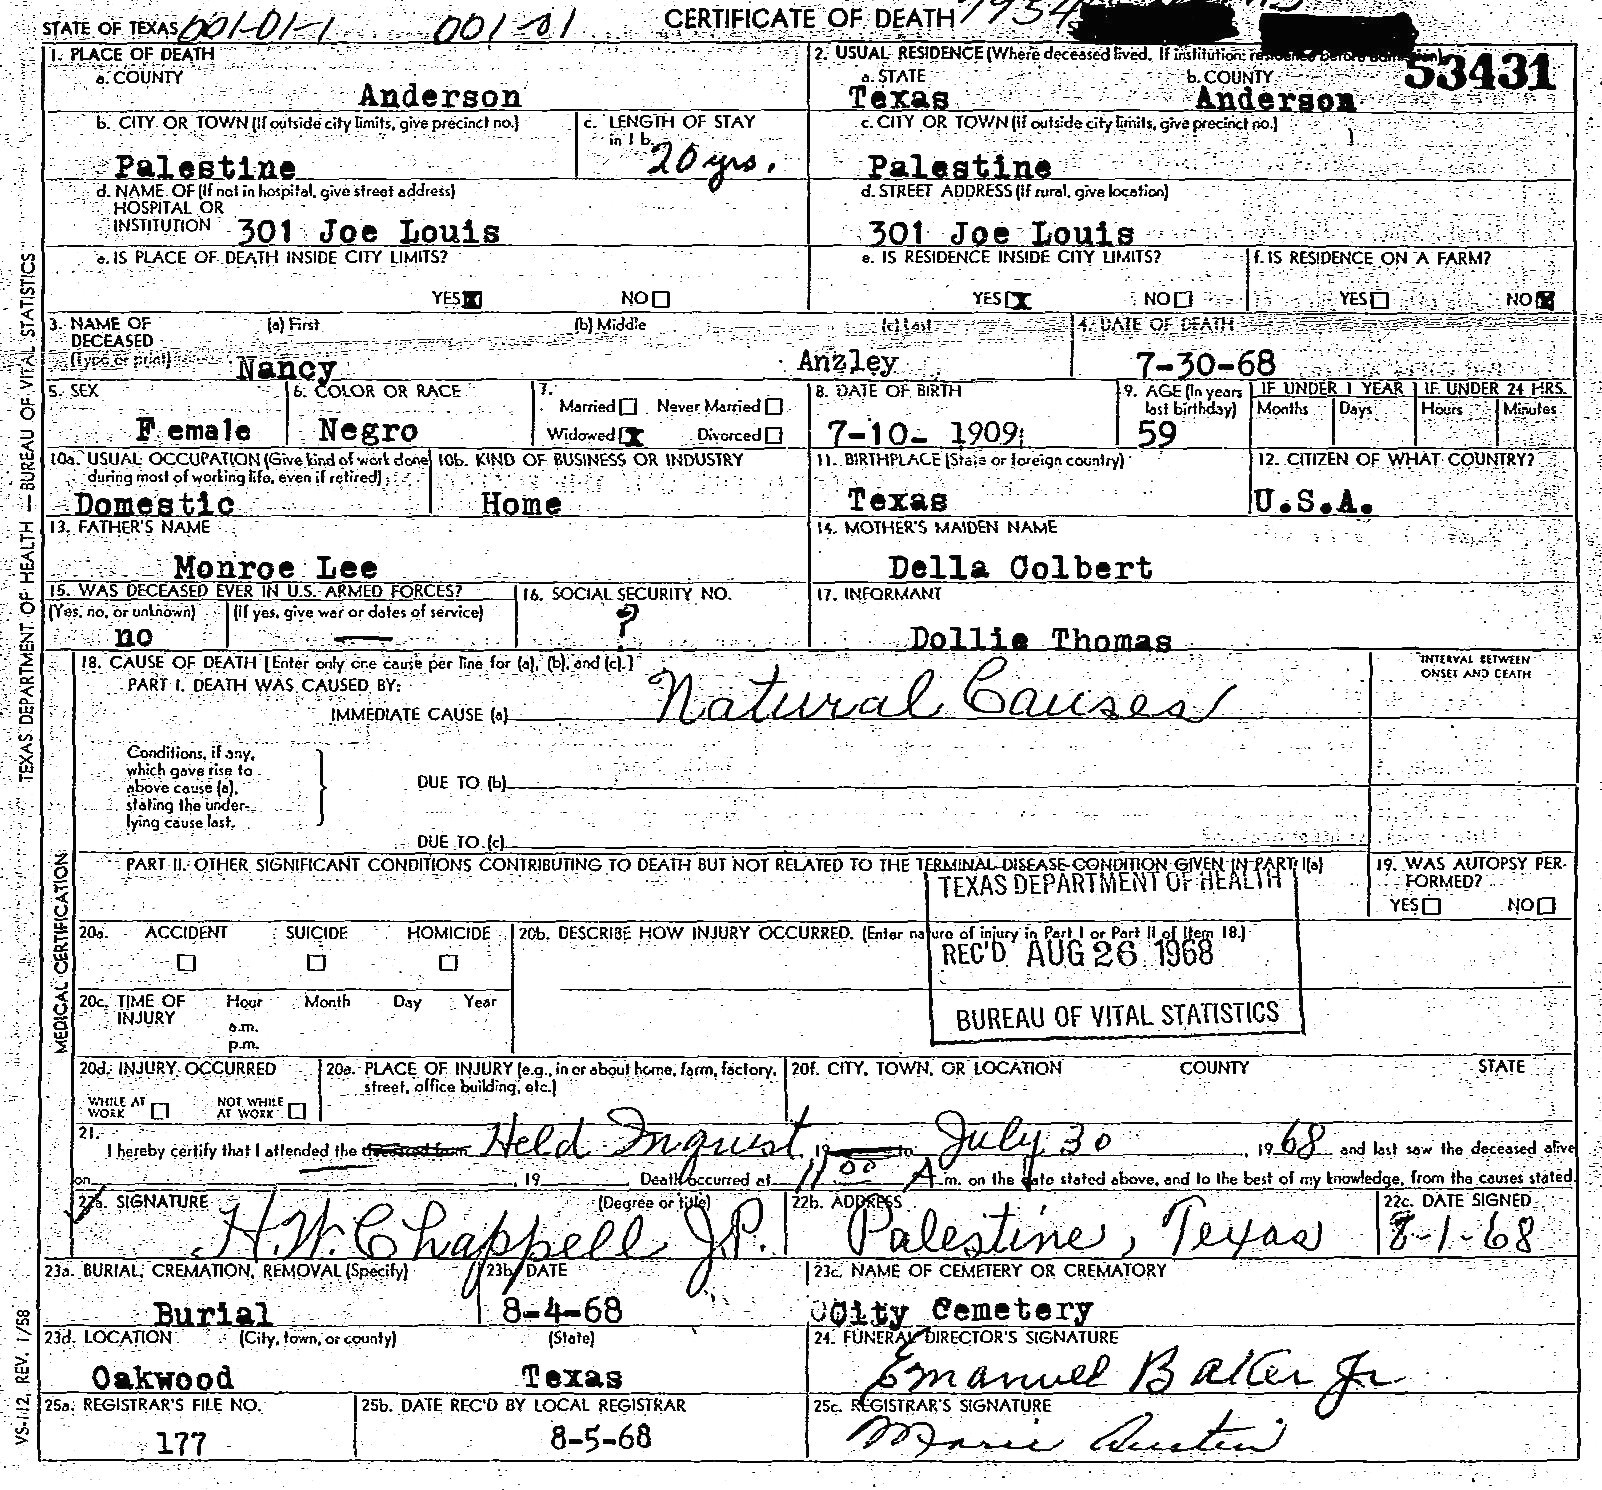 STATE OF TEXAS 001-01-1 001-01 CERTIFICATE OF DEATH
53431
1. PLACE OF DEATH
a. COUNTY
Anderson
2. USUAL RESIDENCE (Where deceased lived. If institution: residence before admission)
a. STATE b. COUNTY
Texas Anderson
b. CITY OR TOWN (If outside city limits, give precinct no.)
Palestine
c. LENGTH OF STAY
in 1 b.
20 yrs.
c. CITY OR TOWN (If outside city limits, give precinct no.)
Palestine
d. NAME OF (If not in hospital, give street address)
HOSPITAL OR
INSTITUTION 301 Joe Louis
d. STREET ADDRESS (If rural, give location)
301 Joe Louis
e. IS PLACE OF DEATH INSIDE CITY LIMITS?
YES NO
e. IS RESIDENCE INSIDE CITY LIMITS?
YES NO
f. IS RESIDENCE ON A FARM?
YES NO
3. NAME OF
DECEASED
(Type or print)
(a) First (b) Middle (c) Last
Nancy Anzley
4. DATE OF DEATH
7-30-68
5. SEX
Female
6. COLOR OR RACE
Negro
7.
Married Never Married
Widowed Divorced
8. DATE OF BIRTH
7-10- 1909
9. AGE (In years
last birthday)
59
IF UNDER 1 YEAR IF UNDER 24 HRS.
Months Days Hours Minutes
10a. USUAL OCCUPATION (Give kind of work done
during most of working life, even if retired)
Domestic
10b. KIND OF BUSINESS OR INDUSTRY
Home
11. BIRTHPLACE (State or foreign country)
Texas
12. CITIZEN OF WHAT COUNTRY?
U.S.A.
13. FATHER'S NAME
Monroe Lee
14. MOTHER'S MAIDEN NAME
Della Colbert
15. WAS DECEASED EVER IN U.S. ARMED FORCES?
(Yes, no, or unknown) (If yes, give war or dates of service)
no —
16. SOCIAL SECURITY NO.
?
17. INFORMANT
Dollie Thomas
18. CAUSE OF DEATH [Enter only one cause per line for (a), (b), and (c).]
PART I. DEATH WAS CAUSED BY:
IMMEDIATE CAUSE (a) Natural Causes
INTERVAL BETWEEN
ONSET AND DEATH
Conditions, if any,
which gave rise to
above cause (a),
stating the under-
lying cause last.
DUE TO (b)
DUE TO (c)
PART II. OTHER SIGNIFICANT CONDITIONS CONTRIBUTING TO DEATH BUT NOT RELATED TO THE TERMINAL DISEASE CONDITION GIVEN IN PART I(a)
19. WAS AUTOPSY PER-
FORMED?
YES NO
TEXAS DEPARTMENT OF HEALTH
REC'D AUG 26 1968
BUREAU OF VITAL STATISTICS
20a. ACCIDENT SUICIDE HOMICIDE
20b. DESCRIBE HOW INJURY OCCURRED. (Enter nature of injury in Part I or Part II of Item 18.)
20c. TIME OF
INJURY
Hour Month Day Year
a.m.
p.m.
20d. INJURY OCCURRED
WHILE AT
WORK
NOT WHILE
AT WORK
20e. PLACE OF INJURY (e.g., in or about home, farm, factory,
street, office building, etc.)
20f. CITY, TOWN, OR LOCATION COUNTY STATE
21.
I hereby certify that I attended the deceased from Held Inquest, 19 to July 30, 1968 and last saw the deceased alive
on , 19 . Death occurred at 11:00 A.m. on the date stated above, and to the best of my knowledge, from the causes stated.
22a. SIGNATURE (Degree or title)
H.W. Chappell J.P.
22b. ADDRESS
Palestine, Texas
22c. DATE SIGNED
8-1-68
23a. BURIAL, CREMATION, REMOVAL (Specify)
Burial
23b. DATE
8-4-68
23c. NAME OF CEMETERY OR CREMATORY
City Cemetery
23d. LOCATION (City, town, or county) (State)
Oakwood Texas
24. FUNERAL DIRECTOR'S SIGNATURE
Emanuel Baker Jr
25a. REGISTRAR'S FILE NO.
177
25b. DATE REC'D BY LOCAL REGISTRAR
8-5-68
25c. REGISTRAR'S SIGNATURE
Marie Austin
TEXAS DEPARTMENT OF HEALTH — BUREAU OF VITAL STATISTICS
MEDICAL CERTIFICATION
VS-112, REV. 1/58